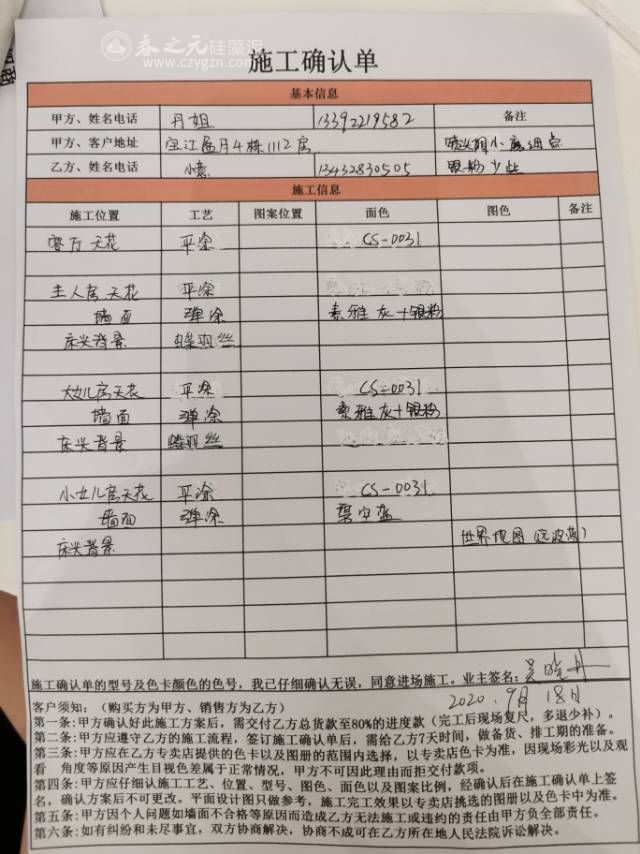 春之元硅藻泥
www.czygzn.com
施工确认单
基本信息
甲方、姓名电话 丹姐 13392219582 备注
甲方、客户地址 江 月4栋1112房 喷 小 细点
乙方、姓名电话 小意 13432830505 银粉少些
施工信息
施工位置 工艺 图案位置 面色 图色 备注
客厅天花 平涂 CS-0031
主人房天花 平涂
墙面 弹涂 素雅灰+银粉
床头背景 蝶羽丝
大女儿房天花 平涂 CS-0031
墙面 弹涂 素雅灰+银粉
床头背景 蝶羽丝
小女儿房天花 平涂 CS-0031
墙面 弹涂 碧空蓝
床头背景 世界地图
施工确认单的型号及色卡颜色的色号，我已仔细确认无误，同意进场施工。业主签名：
2020.9月18日
客户须知：（购买方为甲方、销售方为乙方）
第一条：甲方确认好此施工方案后，需交付乙方总货款至80%的进度款（完工后现场复尺，多退少补）。
第二条：甲方应遵守乙方的施工流程，签订施工确认单后，需给乙方7天时间，做备货、排工期的准备。
第三条：甲方应在乙方专卖店提供的色卡以及图册的范围内选择，以专卖店色卡为准，因现场彩光以及观
看 角度等原因产生目视色差属于正常情况，甲方不可因此理由而拒交付款项。
第四条：甲方应仔细认施工工艺、位置、型号、图色、面色以及图案比例，经确认后在施工确认单上签
名，确认方案后不可更改。平面设计图只做参考，施工完工效果以专卖店挑选的图册以及色卡中为准。
第五条：甲方因个人问题如墙面不合格等原因而造成乙方无法施工或违约的责任由甲方负全部责任。
第六条：如有纠纷和未尽事宜，双方协商解决，协商不成可在乙方所在地人民法院诉讼解决。